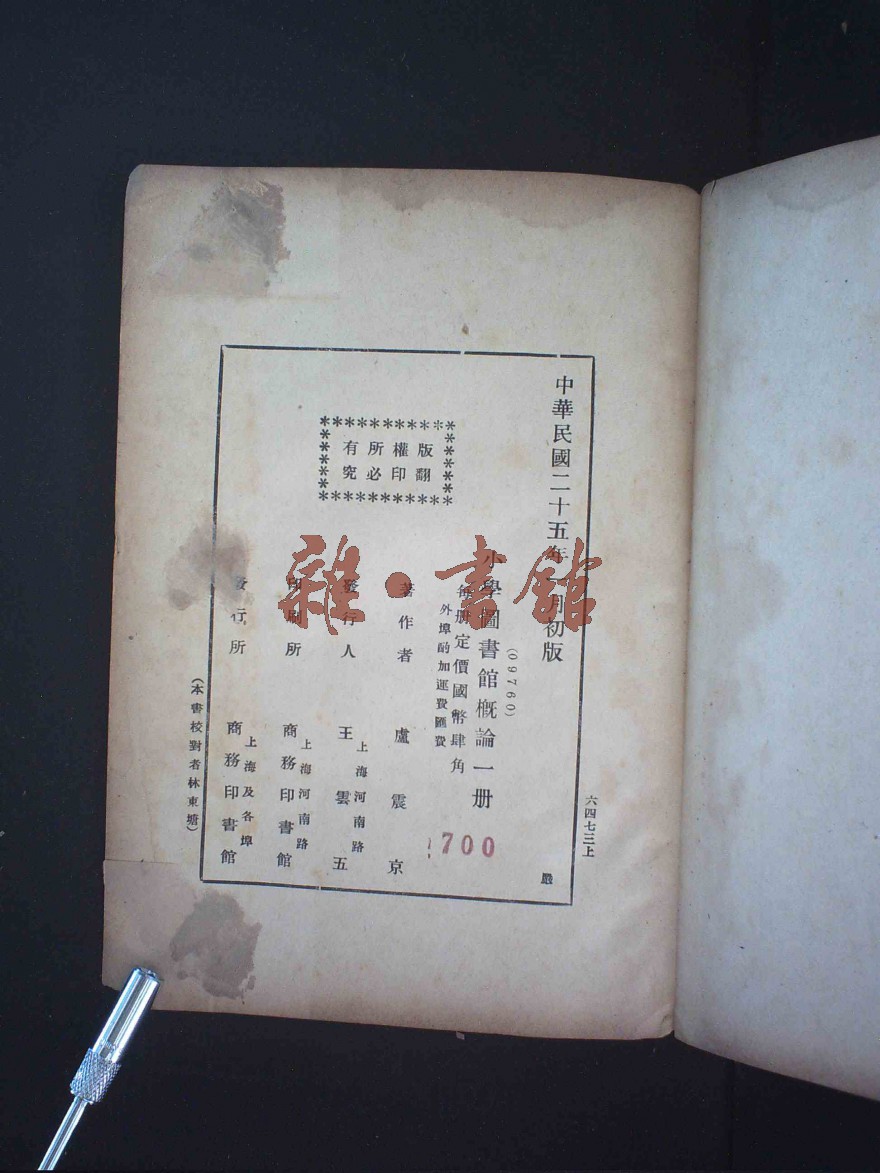 六四七三上
中華民國二十五年 月初版
嚴
(09760)
小學圖書館概論一册
每册定價國幣肆角
外埠酌加運費匯費
700
版權所有
翻印必究
著作者 盧震京
上海河南路
發行人 王雲五
上海河南路
印刷所 商務印書館
上海及各埠
發行所 商務印書館
(本書校對者林東塘)
雜·書館